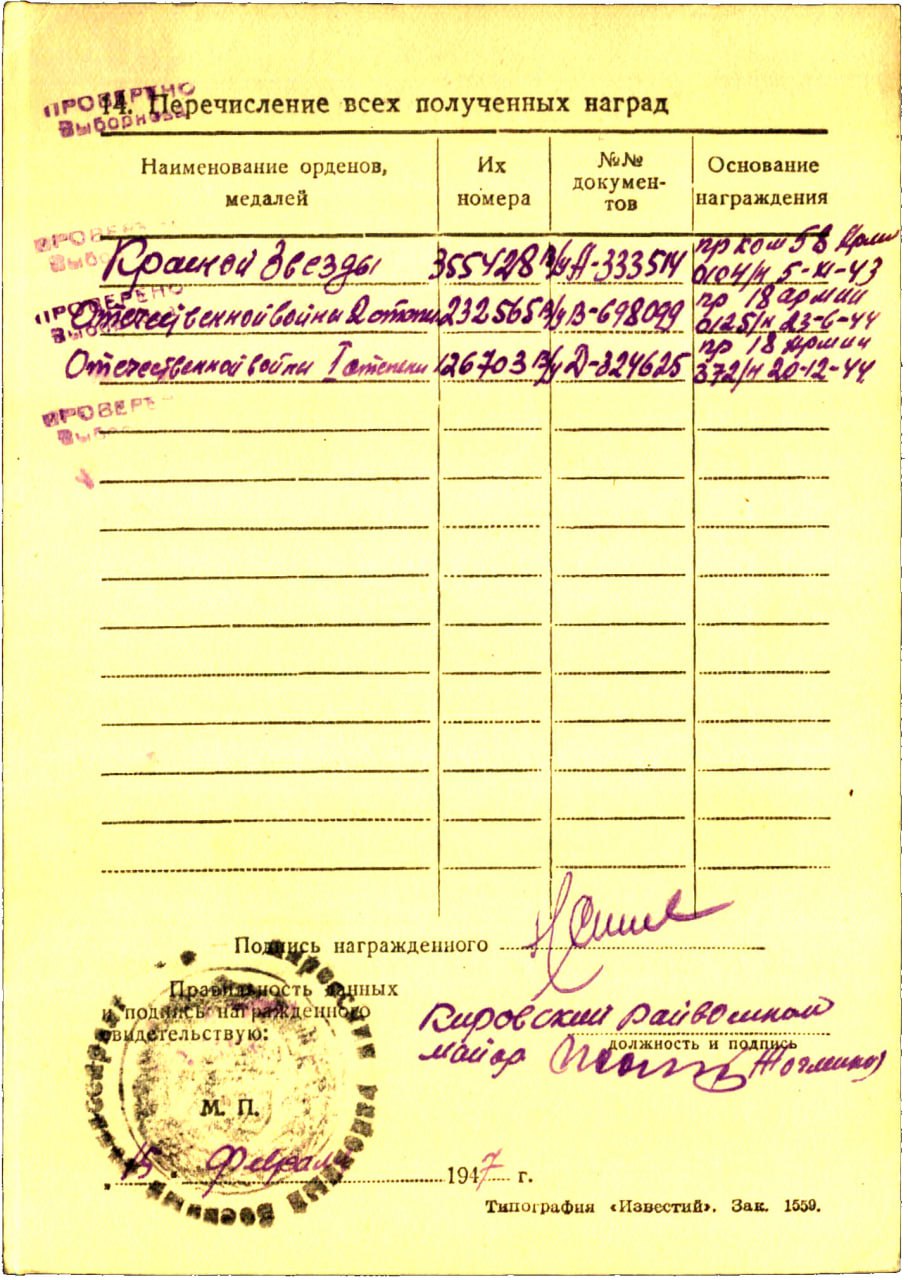 ПРОВЕРЕНО
Выборнова
14. Перечисление всех полученных наград
Наименование орденов, медалей
Их номера
№№ докумен-тов
Основание награждения
ПРОВЕР
Выбо
Красной Звезды 355428 В/у А-333514 пр ком 58 Арми 0104/н 5-XI-43
ПРОВЕРЕНО
Отечественной войны 2 степени 232565 В/у В-698099 пр 18 армии 0125/н 23-6-44
Отечественной войны I степени 126703 В/у Д-824625 пр 18 Армии 372/н 20-12-44
ПРОВЕРЕ
Выб
Подпись награжденного
Правильность данных
и подпись награжденного
свидетельствую:
Кировский райвоенком
должность и подпись
майор
М. П.
Кировский районный военный
15 Февраля 1947 г.
Типография «Известий». Зак. 1559.